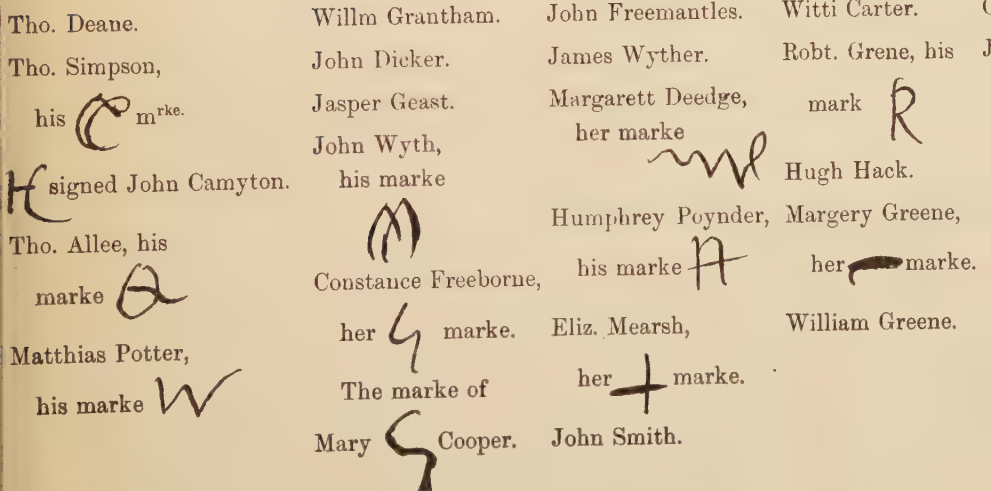 Tho. Deane.
Tho. Simpson,
his mrke.
signed John Camyton.
Tho. Allee, his
marke
Matthias Potter,
his marke
Willm Grantham.
John Dicker.
Jasper Geast.
John Wyth,
his marke
Constance Freeborne,
her marke.
The marke of
Mary Cooper.
John Freemantles.
James Wyther.
Margarett Deedge,
her marke
Humphrey Poynder,
his marke
Eliz. Mearsh,
her marke.
John Smith.
Witti Carter.
Robt. Grene, his
mark R
Hugh Hack.
Margery Greene,
her marke.
William Greene.